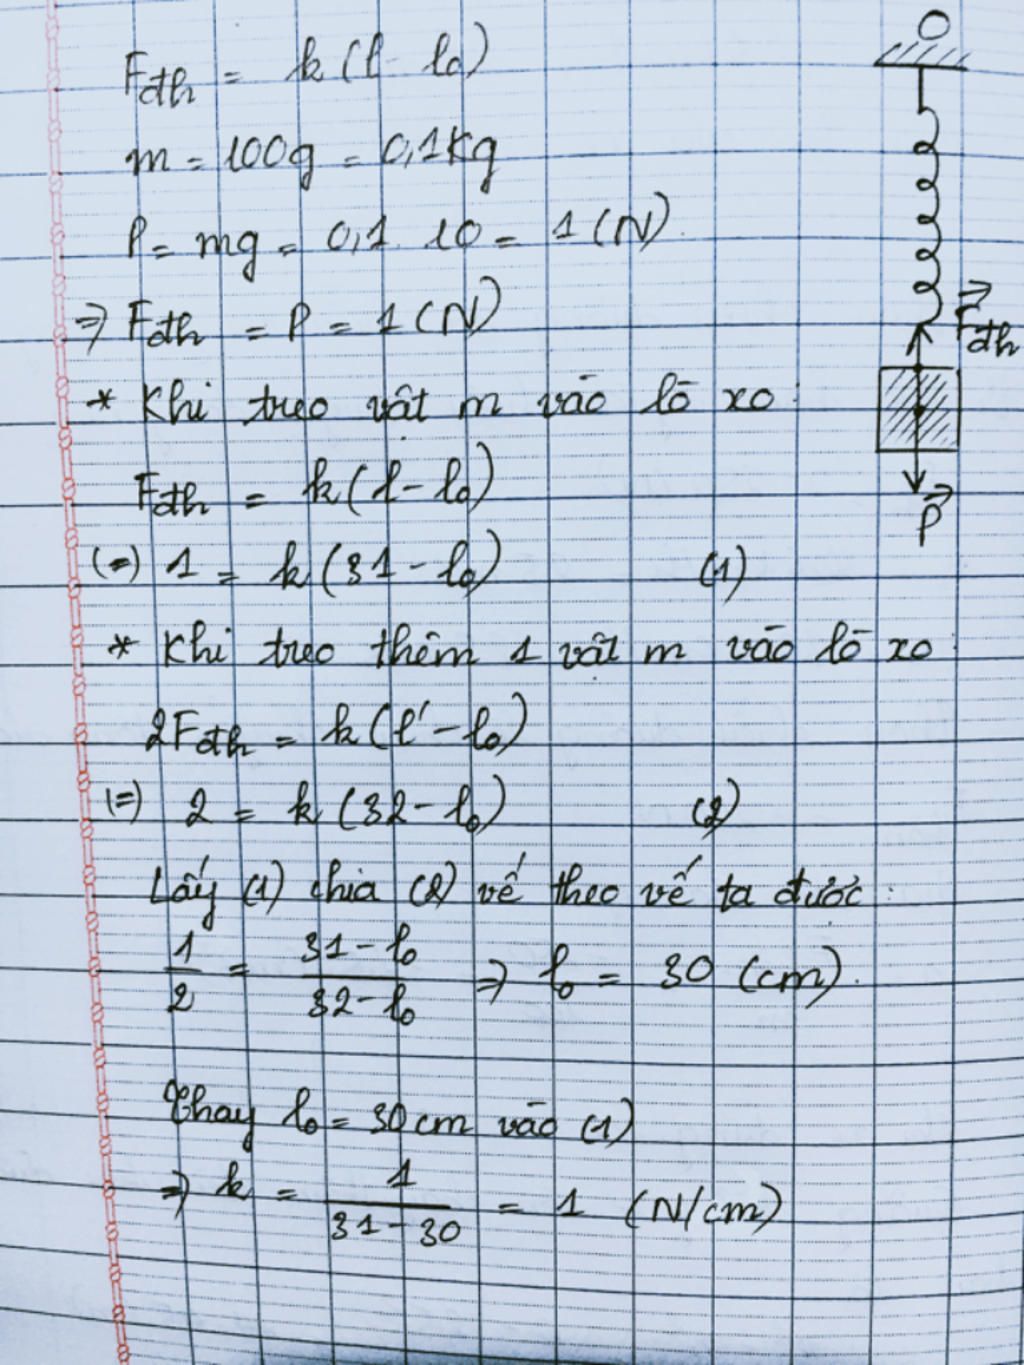 O
Fđh = k(l - l₀)
m = 100g = 0,1Kg
P = mg = 0,1. 10 = 1 (N).
⇒ Fđh = P = 1 (N)
F⃗đh
* Khi treo vật m vào lò xo:
Fđh = k(l - l₀)
P⃗
(=) 1 = k(31 - l₀) (1)
* Khi treo thêm 1 vật m vào lò xo:
2Fđh = k(l' - l₀)
(=) 2 = k(32 - l₀) (2)
Lấy (1) chia (2) vế theo vế ta được:
1/2 = (31 - l₀)/(32 - l₀) ⇒ l₀ = 30 (cm).
Thay l₀ = 30cm vào (1)
⇒ k = 1/(31 - 30) = 1 (N/cm)